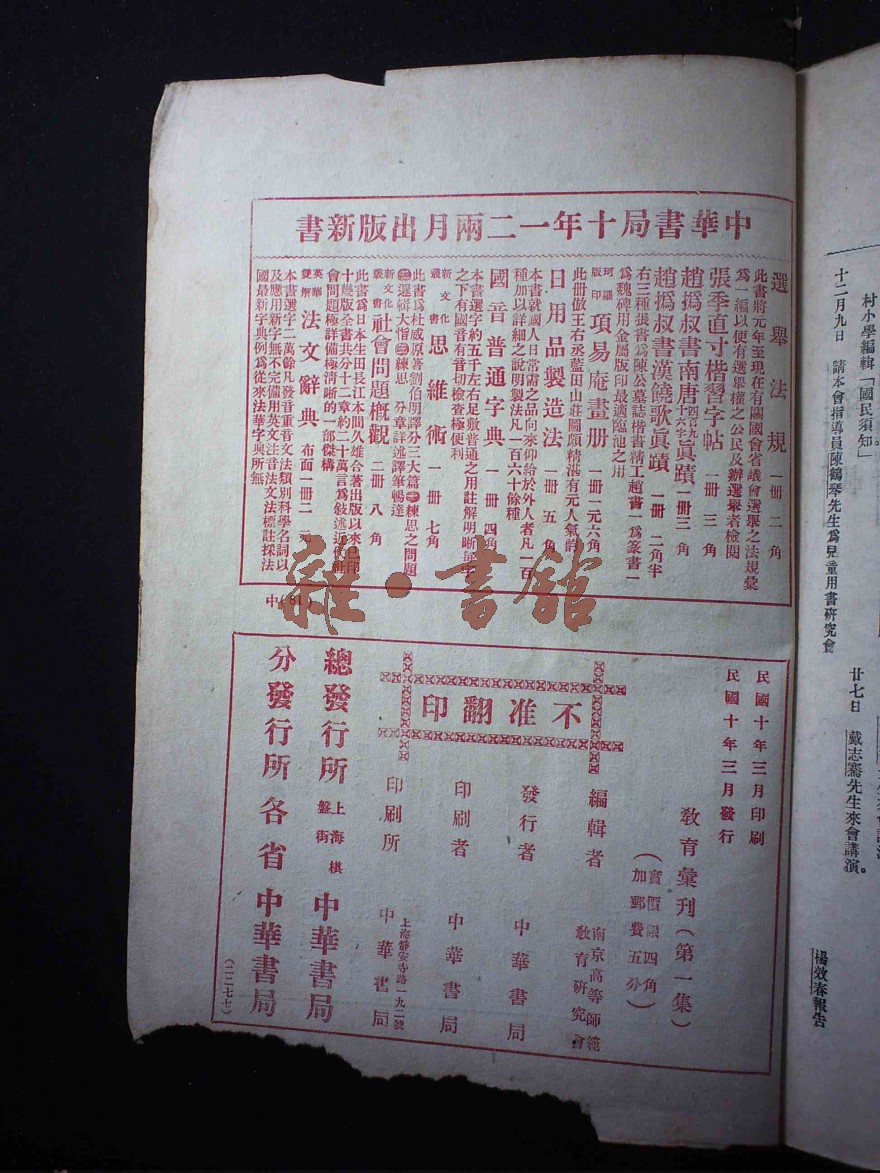 村小學編輯「國民須知」
十二月九日　請本會指導員陳鶴琴先生爲兒童用書研究會
廿七日　戴志騫先生來會講演。
楊效春報告
中華書局十年一二兩月出版新書
選舉法規　一冊　二角
此書將元年至現在有關國會省議會選舉之法規彙
爲一編以便有選舉權之公民及辦選舉者檢閱
張季直寸楷習字帖　一冊　三角
趙撝叔書南唐四百九十六字眞蹟　一冊　三角
趙撝叔書漢鐃歌眞蹟　一冊　二角半
右三種張書爲陳公墓誌楷書精工趙書一爲篆書一
爲魏碑用金屬版印最適臨池之用
珂羅版印　項易庵畫册　一冊　一元六角
此册倣王右丞藍田山莊圖頗精湛有元人氣韻
日用品製造法　一冊　五角
本書就國人日常需之品向來仰給於外人者凡一百
種加以詳細之說明製法凡一百六十餘種
國音普通字典　一冊　四角
本書選字約五千左右足敷普通之用註解明晰每字
之下有國音有音切檢查極便利
新文化叢書　思維術　一冊　七角
此書爲杜威原著劉伯明譯分三大篇㊀練思之問題
㊁邏輯大恉㊂練思　分章詳述譯筆暢達
新文化叢書　社會問題概觀　二冊　八角
此書爲日本生田長江本間久雄合著出版以來已印
十幾版全書共分十二章約二十萬言爲敍述近代社
會問題極詳備極清晰的一部傑構
英華雙解　法文辭典　布面一冊　二元
本書選字二萬餘凡發音重音文法類別科學名詞以
及應用新字無不完備用英文注音法文標註採法
國最新字典例爲從來法華字典所無
中(81)
雜·書館
民國十年三月印刷
民國十年三月發行
教育彙刊（第一集）
（實價銀四角）
（加郵費五分）
不准翻印
編輯者　南京高等師範教育研究會
發行者　中華書局
印刷者　中華書局
印刷所　上海靜安寺路一九二號　中華書局
總發行所　上海棋盤街　中華書局
分發行所　各省　中華書局
（二二七七）